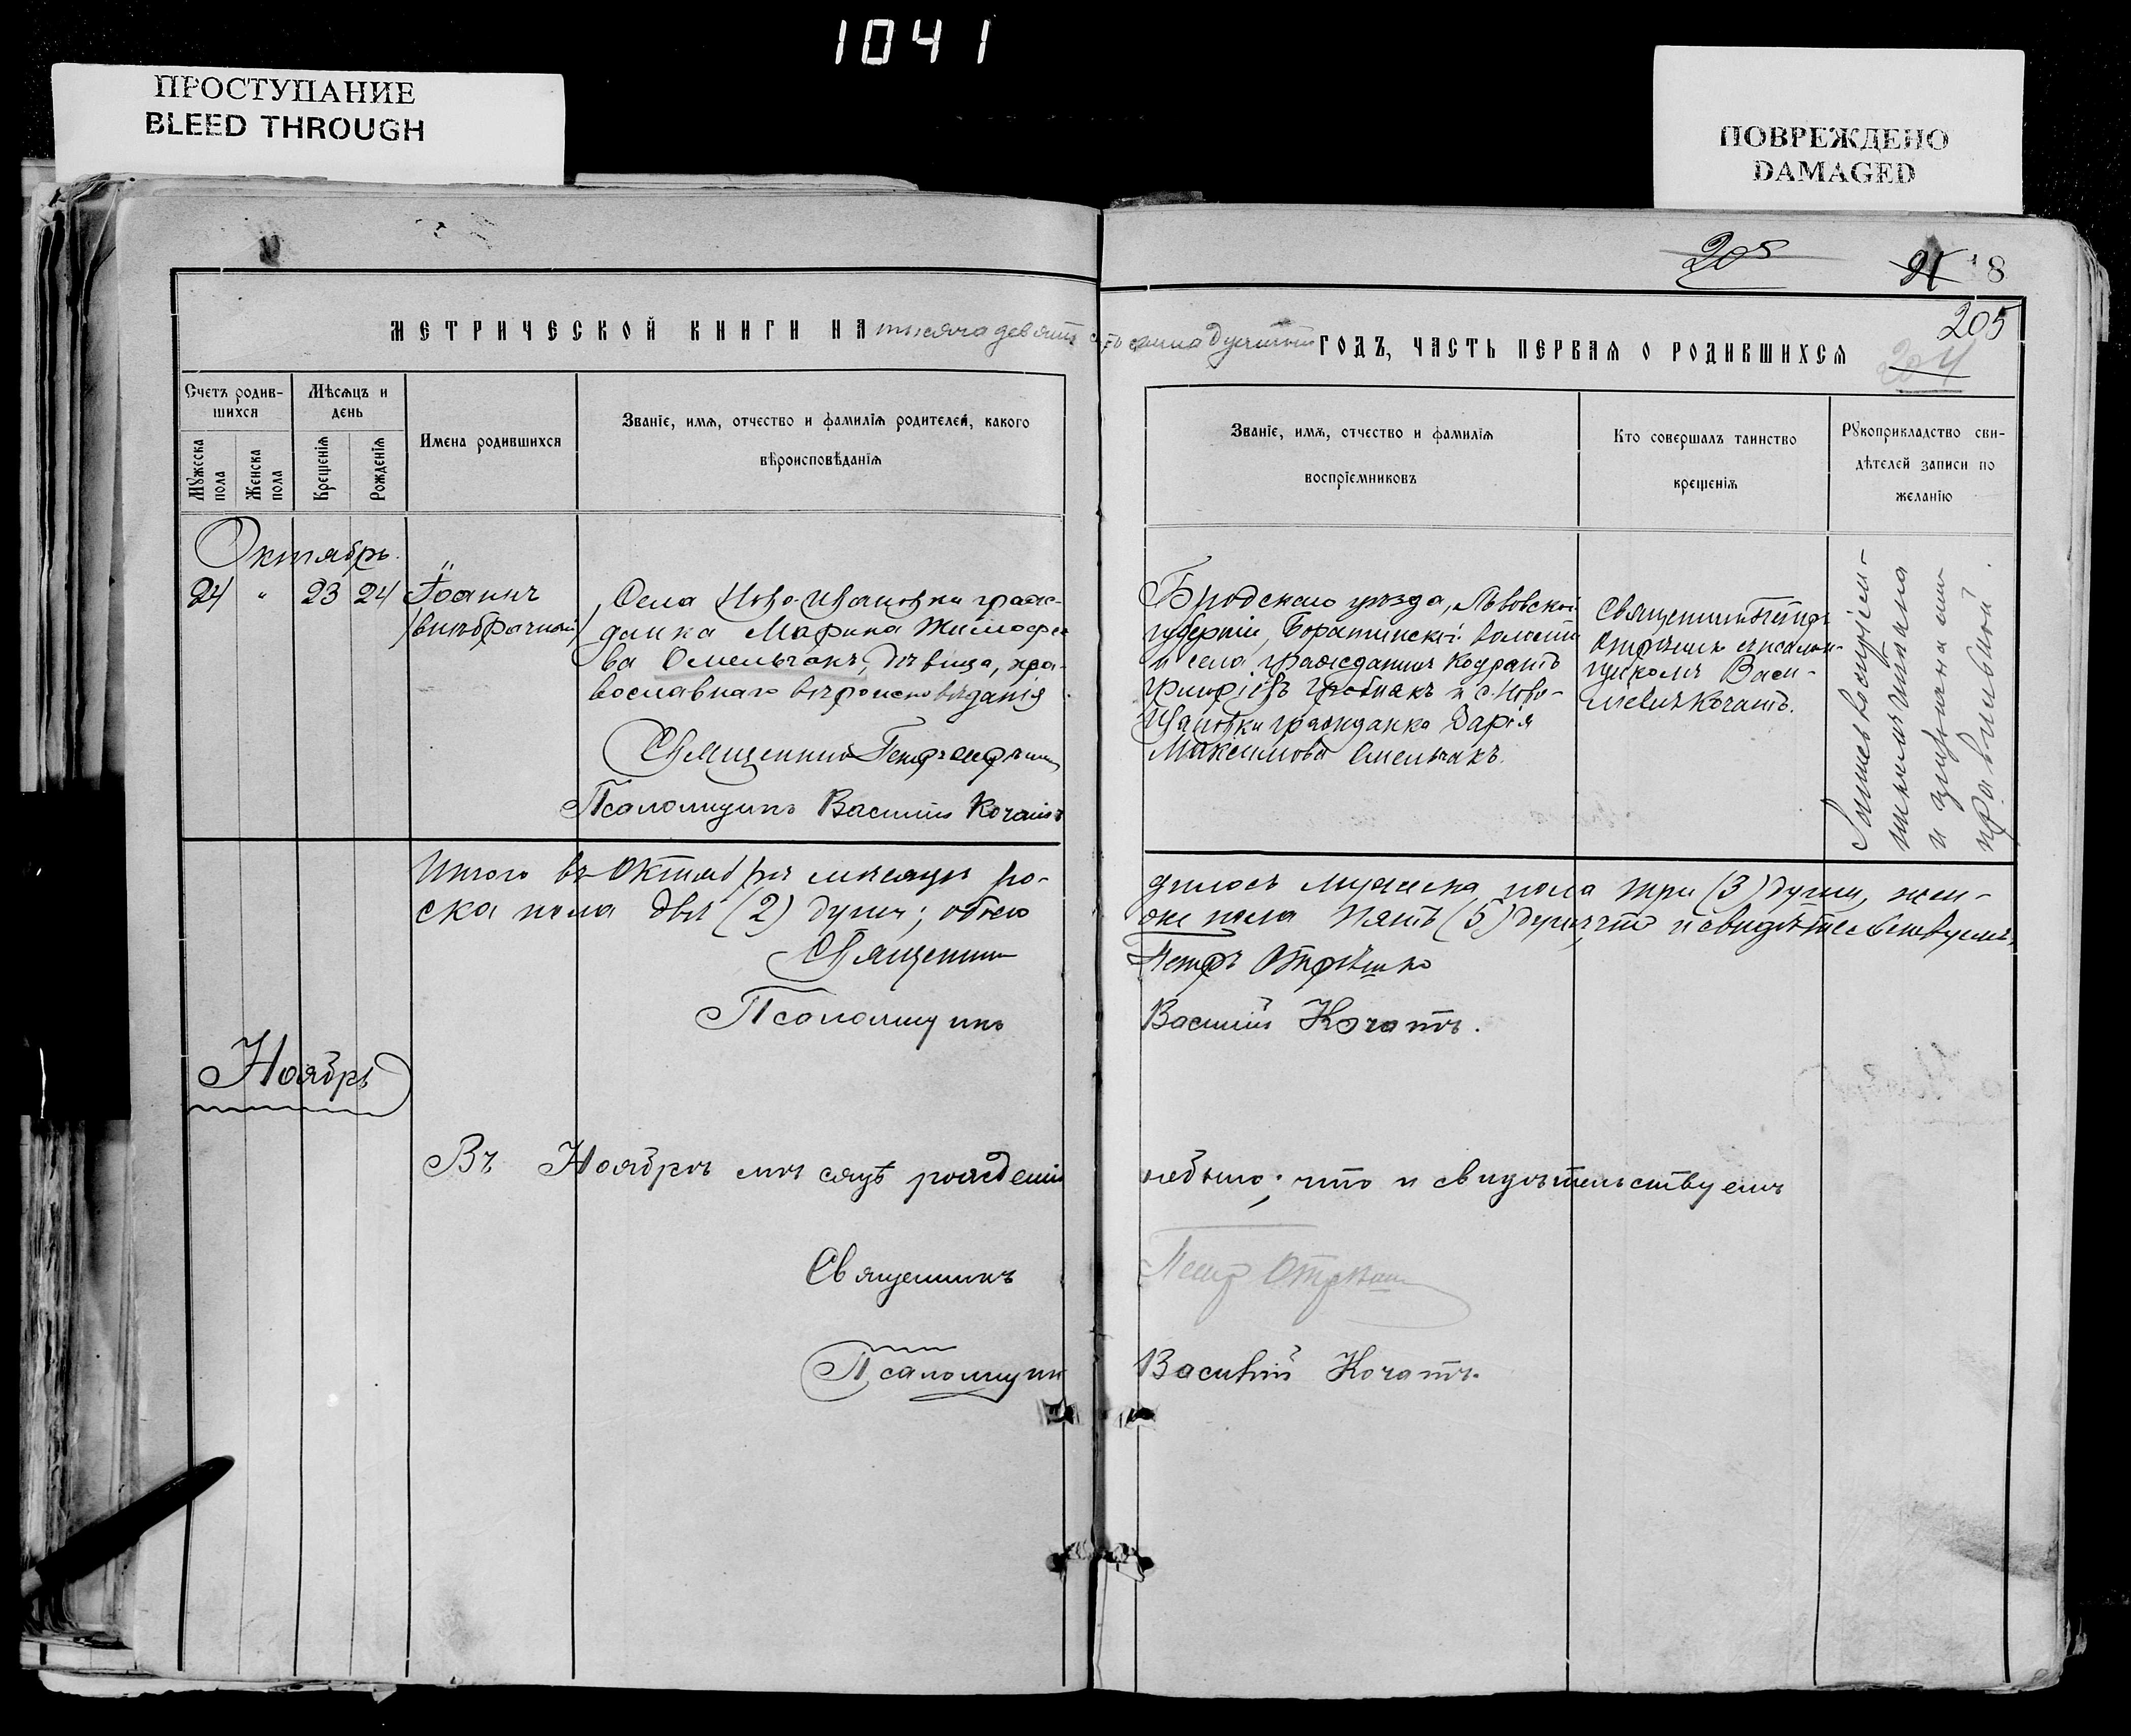 1041
ПРОСТУПАНИЕ
BLEED THROUGH
ПОВРЕЖДЕНО
DAMAGED
205
91 18
205
204
МЕТРИЧЕСКОЙ КНИГИ НА тысяча девятьсотъ семнадцатый ГОДЪ, ЧАСТЬ ПЕРВАЯ О РОДИВШИХСЯ
Счетъ родив-
шихся
Мужеска пола
Женска пола
Мѣсяцъ и
день
Крещенія
Рожденія
Имена родившихся
Званіе, имя, отчество и фамилія родителей, какого
вѣроисповѣданія
Званіе, имя, отчество и фамилія
воспріемниковъ
Кто совершалъ таинство
крещенія
Рукоприкладство сви-
дѣтелей записи по
желанію
Октябрь.
24 " 23 24 Іоаннъ
/внѣбрачный/
Села Ново-Ивановки граж-
данка Марина Тимофее
ва Омельчакъ, дѣвица, пра-
вославнаго вѣроисповѣданія
Священникъ Петръ
Псаломщикъ Василій Кочатъ
Бродскаго уѣзда, Львовской
губерніи, Боратинской волости
и села гражданинъ Кодратъ
и с. Ново-
Ивановки гражданка Дарія
Максимова Омельчакъ.
Священникъ Петръ
съ псалом-
щикомъ Васи-
ліемъ Кочатъ.
и
Итого въ Октябрѣ мѣсяцѣ ро-
дилось мужеска пола три (3) души, жен-
ска пола двѣ (2) души; обоего
пола пять (5) душъ, что и свидѣтельствуемъ
Священникъ Петръ Отрѣшко
Псаломщикъ Василій Кочатъ.
Ноябрь
Въ Ноябрѣ мѣсяцѣ рожденій небыло; что и свидѣтельствуемъ
Священникъ Петръ
Псаломщикъ Василій Кочатъ.